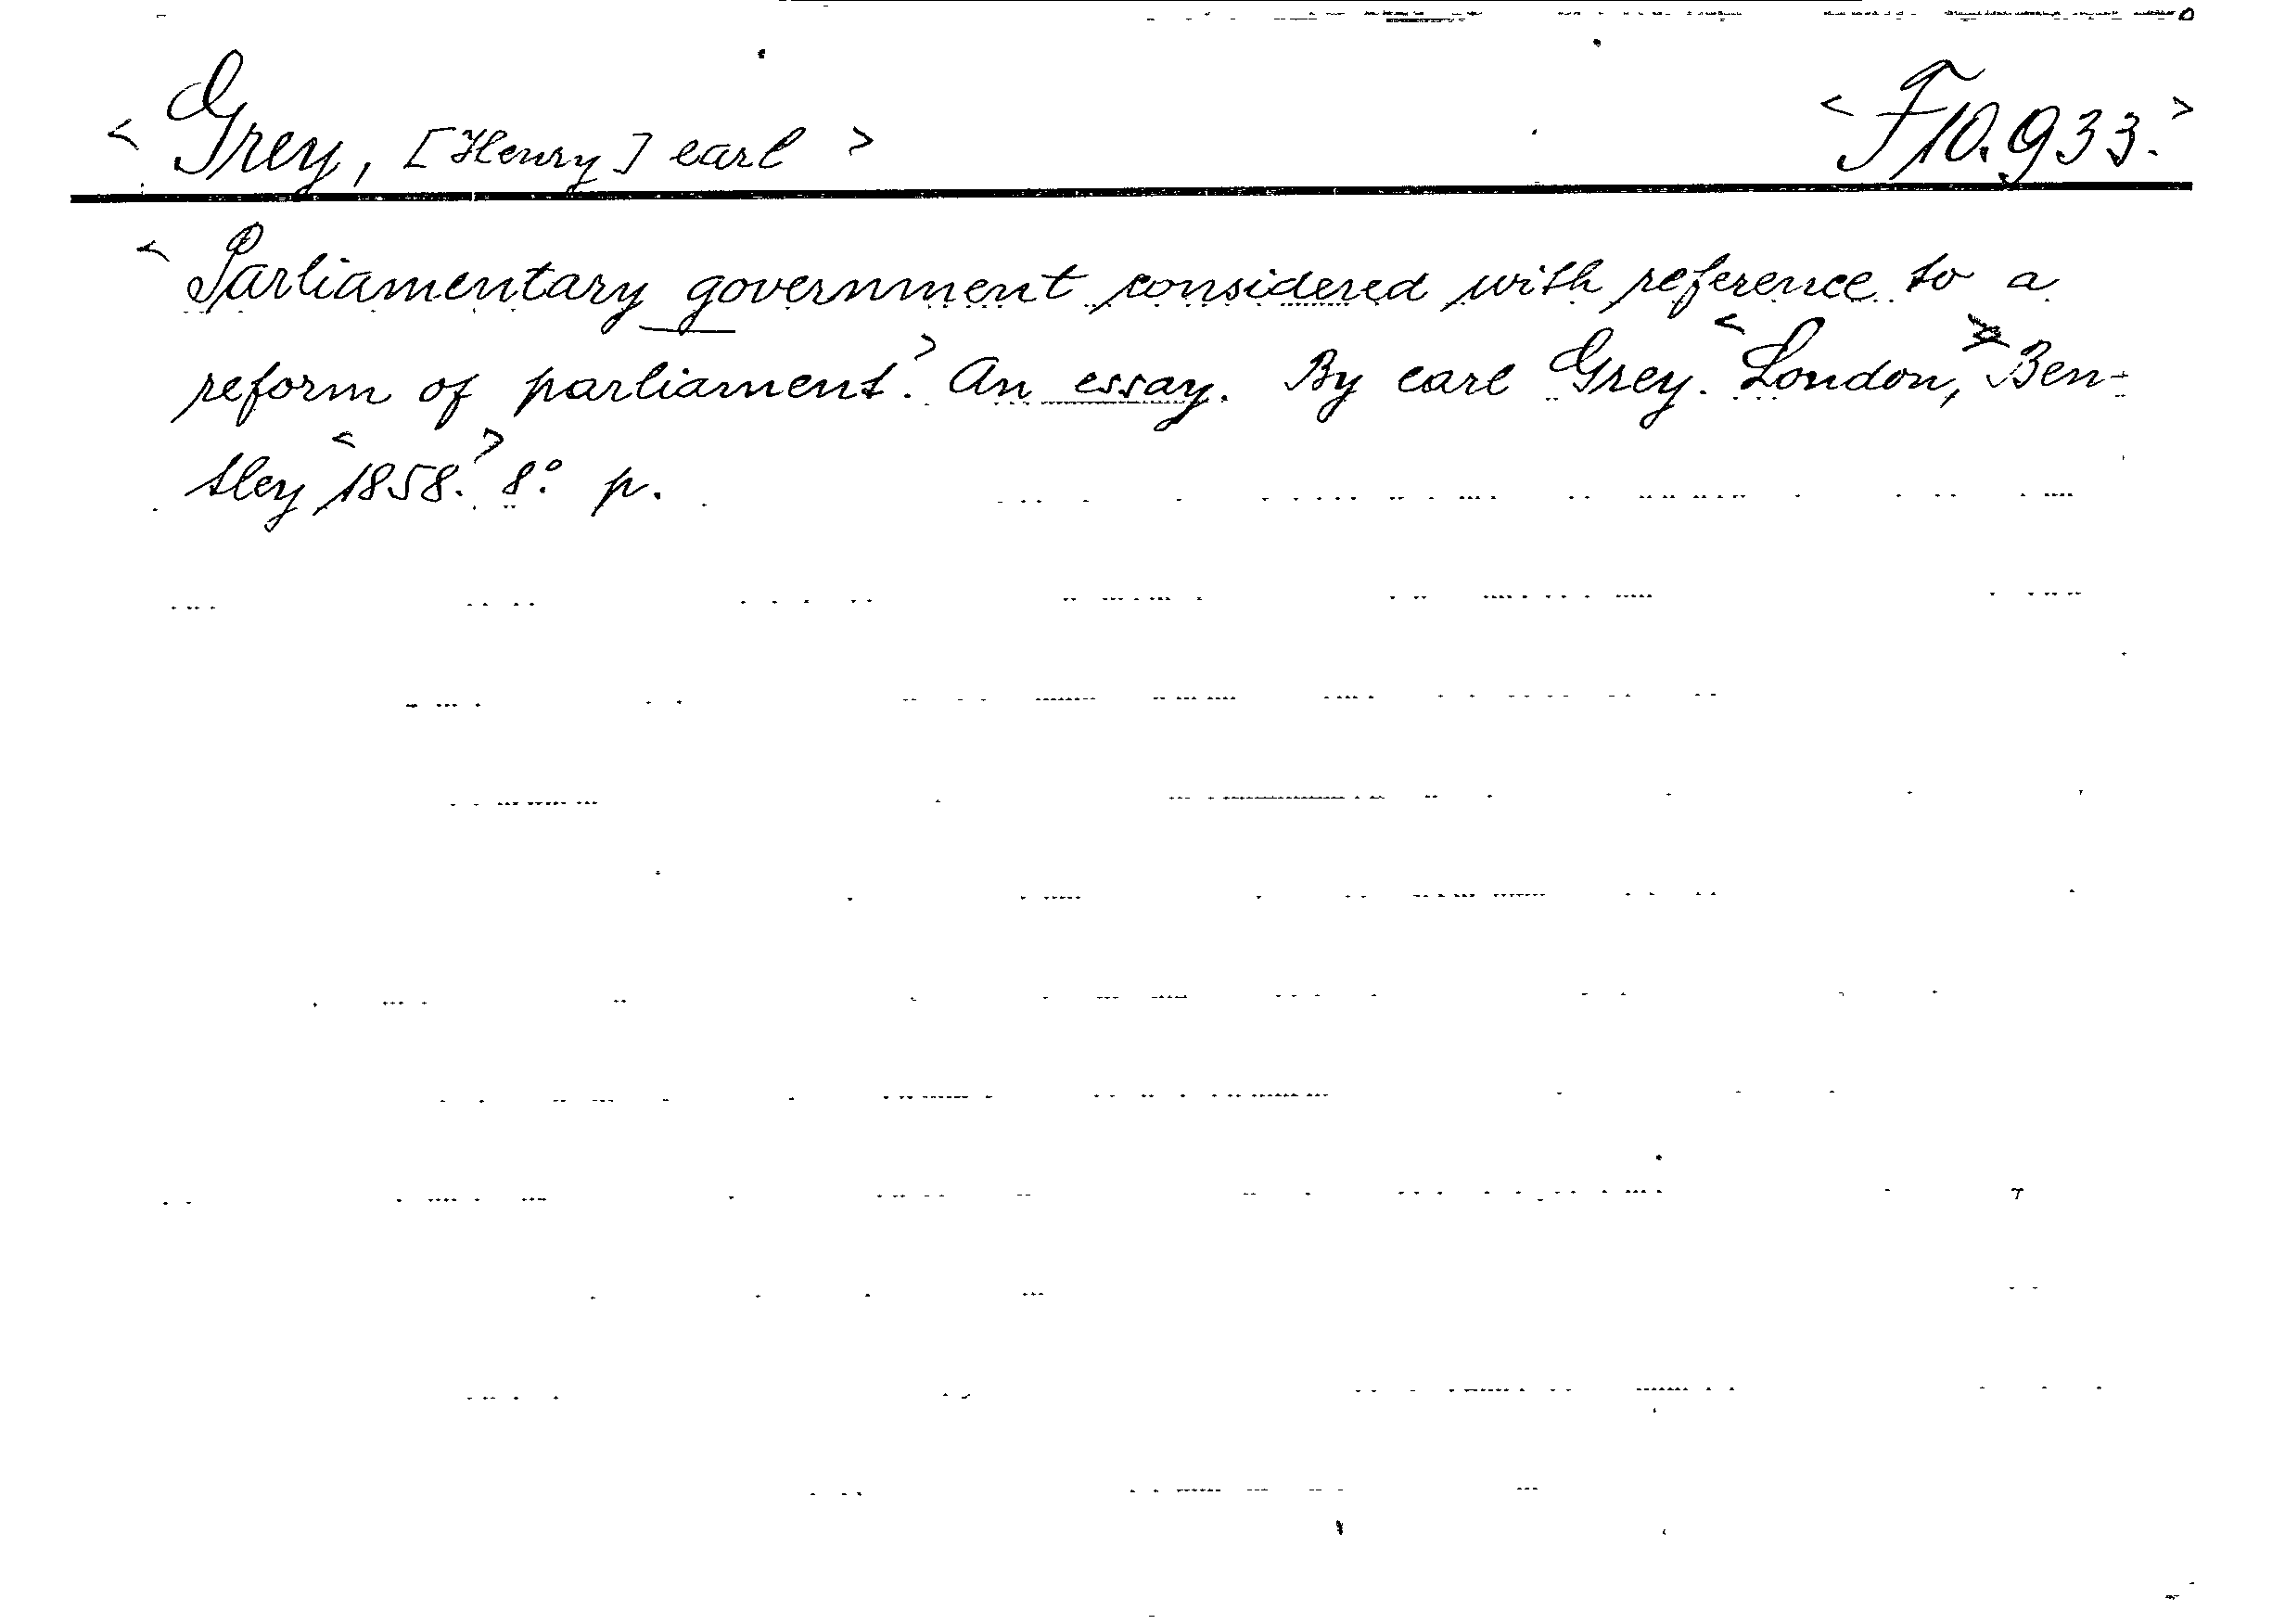 < Grey, [Henry] earl > < F10.933. >
< Parliamentary government considered with reference to a
reform of parliament. > An essay. By earl Grey. < London, > Ben-
tley < 1858. > 8.° p.